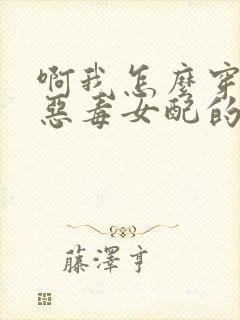 啊我怎麼穿
惡毒女配的
藤澤亨